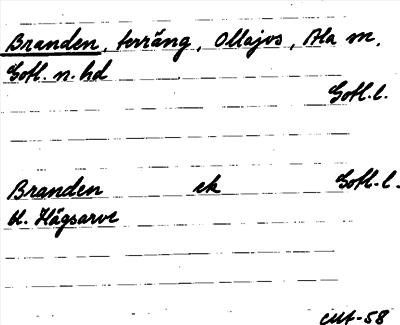 Branden, terräng, Ollajvs, Ala sn,
Gotl. n. hd
Gotl. l.
Branden ek Gotl. l.
St. Hägsarve
CMA-58